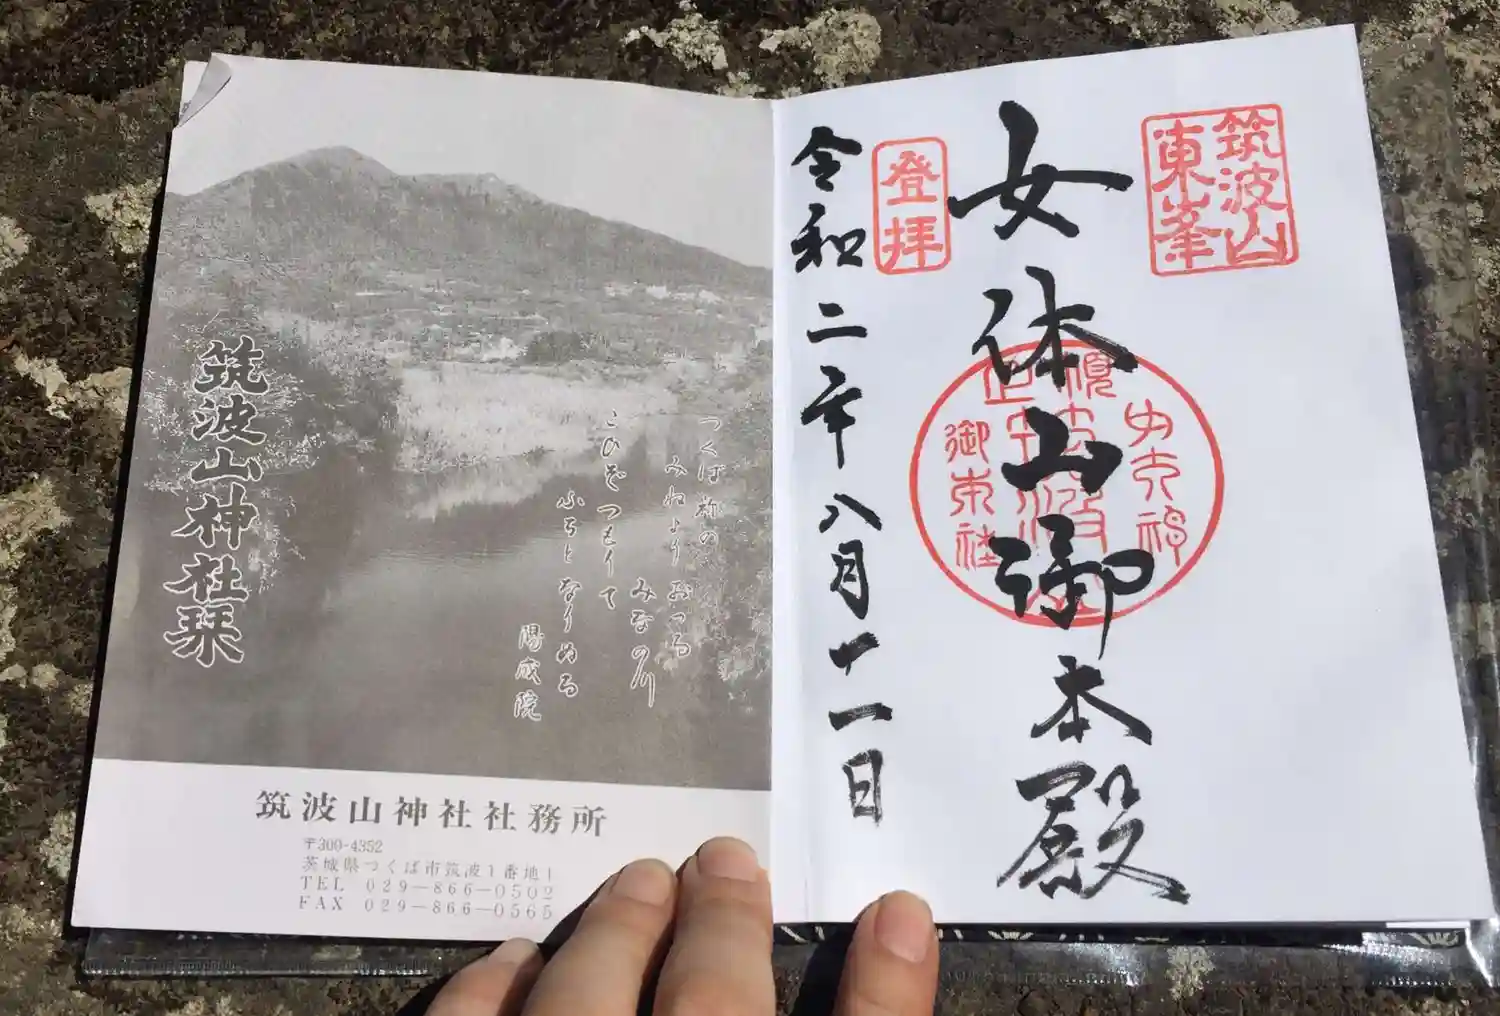 筑波山
東峯
女体山御本殿
登拝
令和二年八月十一日
つくば祢の
みねよりおつる
みなの川
こひぞつもりて
ふちとなりぬる
陽成院
筑波山神社栞
筑波山神社社務所
〒300-4352
茨城県つくば市筑波1番地1
TEL 029-866-0502
FAX 029-866-0565